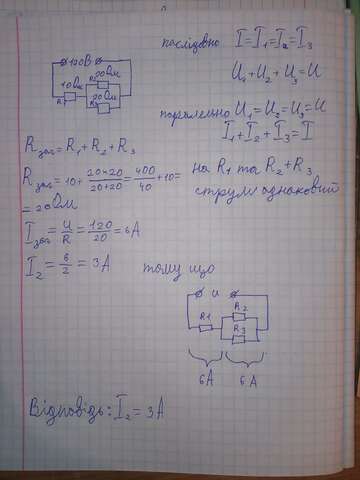 120В
10Ом
R1
20Ом
R2
20Ом
R3
послідовно I=I₁=I₂=I₃
U₁+U₂+U₃=U
паралельно U₁=U₂=U₃=U
I₁+I₂+I₃=I
Rзаг=R₁+R₂+R₃
Rзаг=10+ 20×20/20+20 = 400/40 +10=
=20Ом
на R₁ та R₂+R₃
струм однаковий
Iзаг= U/R = 120/20 = 6А
I₂ = 6/2 = 3А
тому що
U
R1
R2
R3
6А 6А
Відповідь: I₂ = 3А